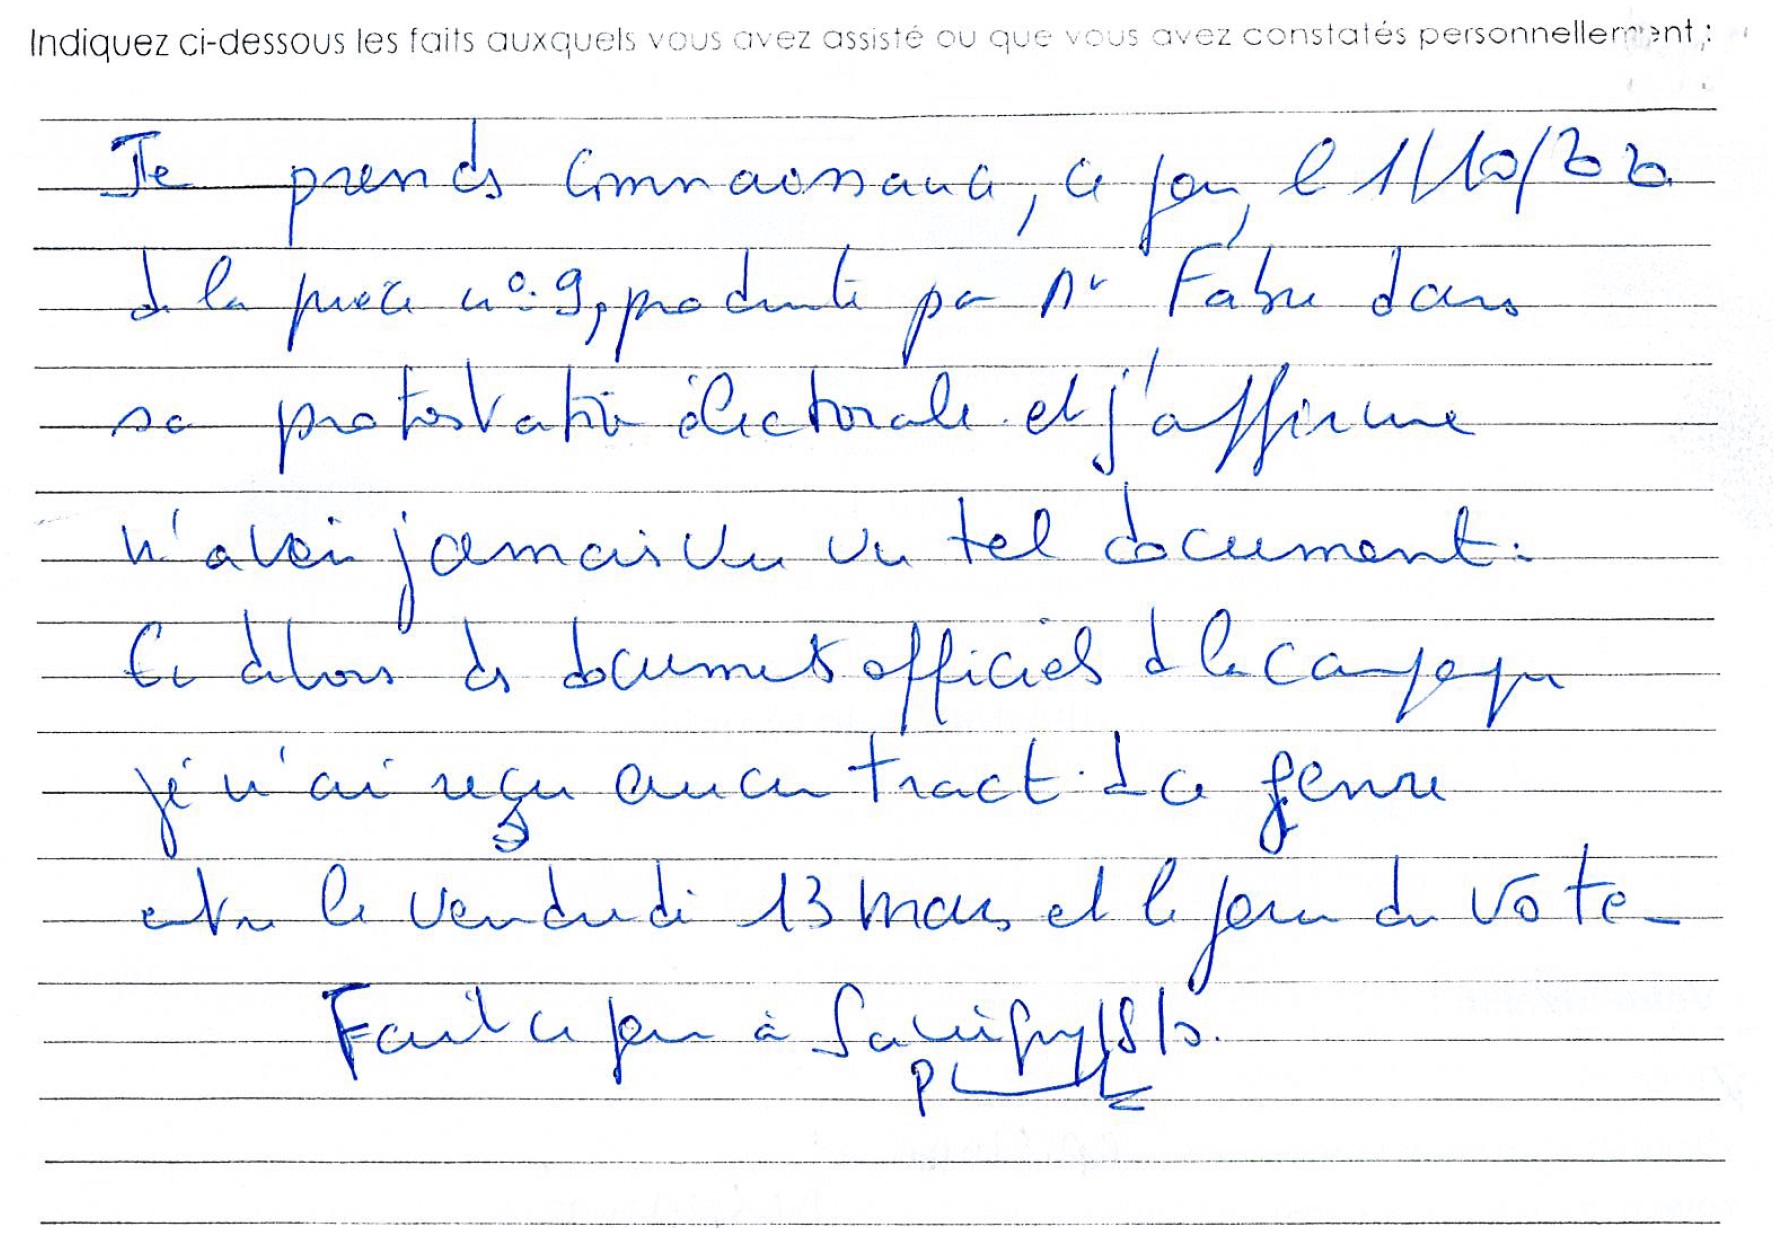 Indiquez ci-dessous les faits auxquels vous avez assisté ou que vous avez constatés personnellement :
Je prends connaissance, ce jour, le 1/10/2020
de la pièce n°.9, produite par Mr Fabre dans
sa protestation électorale et j'affirme
n'avoir jamais vu un tel document.
En dehors des documents officiels de la campagne
je n'ai reçu aucun tract de ce genre
entre le vendredi 13 mars et le jour du vote.
Fait ce jour à Savigny/s/o.